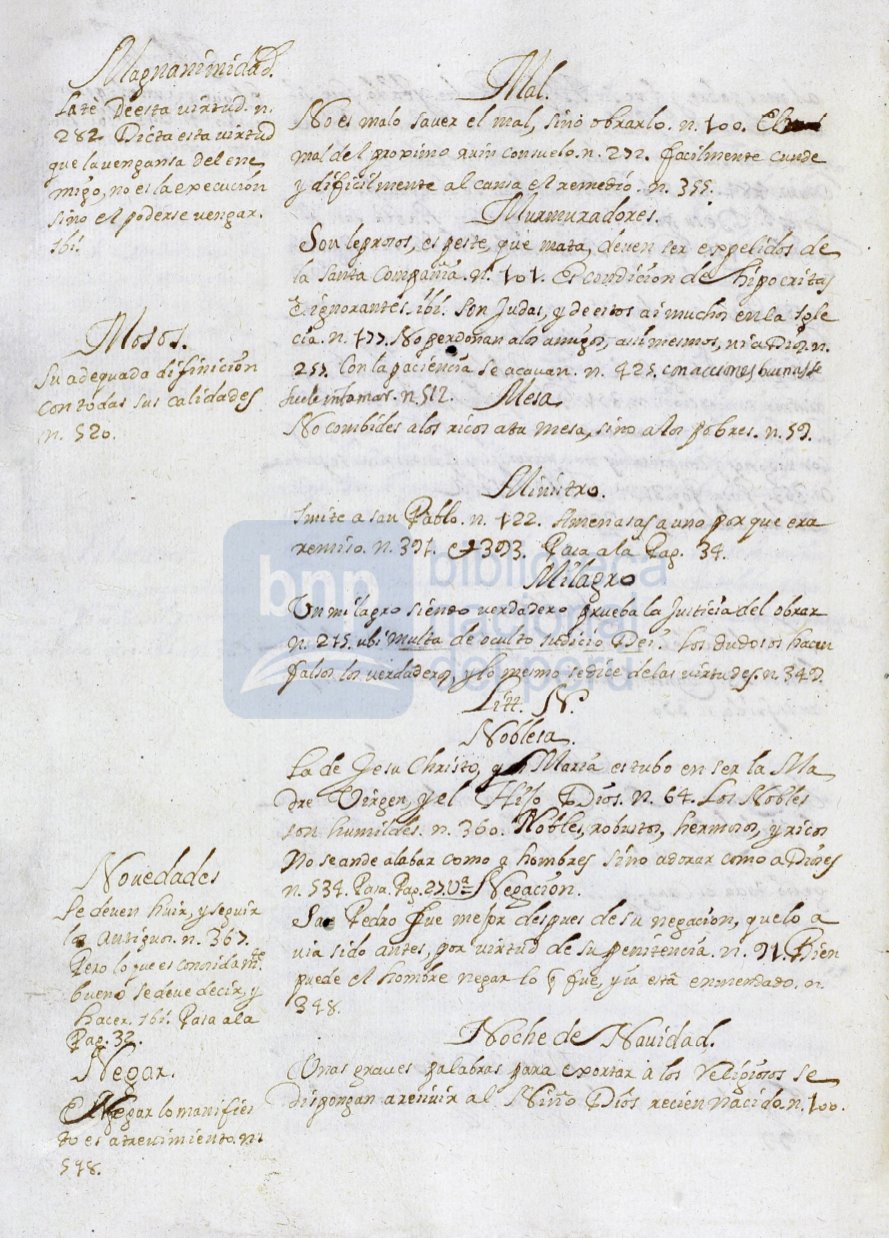 Magnanimidad.
Late De esta virtud. n.
282. Dicta esta virtud
que la vengansa del ene
migo, no es la execución
sino el poderse vengar.
ibi.
Mosos.
Su adequada difinición
con todas sus calidades
n. 520.
Novedades
Se deven huir, y seguir
la antiguos. n. 367.
Pero lo que es conosidamte.
bueno se deve decir, y
hacer. ibi. Pasa a la
Pag. 32.
Negar.
Negar lo manifies
to es atrevimiento. n.
548.
Mal.
No es malo saver el mal, sino obrarlo. n. 100. El
mal del proximo ruin consuelo. n. 272. facilmente cunde
y dificilmente alcansa el remedio. n. 355.
Murmuradores.
Son leprosos, es peste, que mata, deven ser expelidos de
la Santa Compañia. n. 101. Es condicion de hipocritas
e ignorantes. ibi. Son Judas, y de estos ai muchos en la Igle
cia. n. 177. No perdonan a los amigos, a si mesmos, ni a Dios. n.
257. Con la paciencia se acavan. n. 425. con acciones buenas se
suele infamar. n. 512. Mesa.
No combides a los ricos a tu mesa, sino a los pobres. n. 59.
Ministro.
Imite a san Pablo. n. 122. Amenasas a uno por que era
remiso. n. 391. et 393. Pasa a la Pag. 34.
Milagro
Un milagro siendo verdadero prueba la Justicia del obrar
n. 275. ubi multa de oculto iudicio Dei. Los dudosos hacen
falsos los verdaderos, y lo mesmo se dice de las virtudes. n. 349.
Litt. N.
Noblesa.
La de Jesu Christo, y Maria estubo en ser la Ma
dre Virgen, y el Hijo Dios. n. 64. Los Nobles
son humildes. n. 360. Nobles, robustos, hermosos, y ricos
No se ande alabar como a hombres sino adorar como a Dioses
n. 534. Pasa. Pag. 27. Va. Negación.
San Pedro fue mejor despues de su negacion, que lo a
via sido antes, por virtud de su penitencia. n. 91. Bien
puede el hombre negar lo q fue, y ia está enmendado. n.
348.
Noche de Navidad.
Unas graves palabras para exortar a los Religiosos se
dispongan a resivir al Niño Dios recien nacido. n. 100.
bnp biblioteca
nacional
del perú